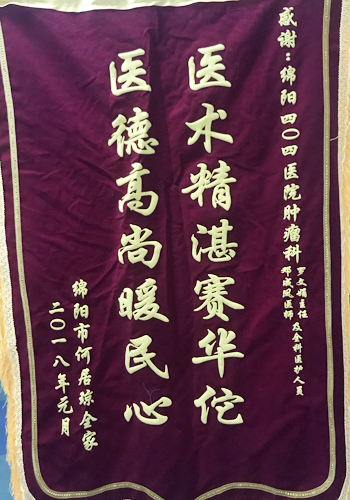 感谢：绵阳四〇四医院肿瘤科
罗文娟主任
邓成凤医师
及全科医护人员
医术精湛赛华佗
医德高尚暖民心
绵阳市何居琼全家
二〇一八年元月